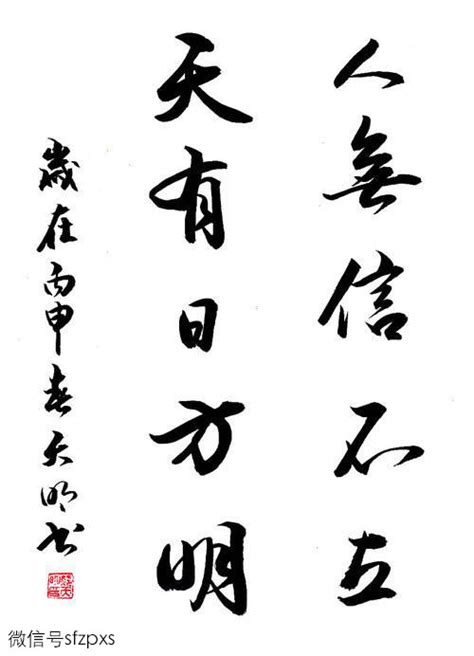 人無信不立
天有日方明
歲在丙申春天明书
微信号sfzpxs